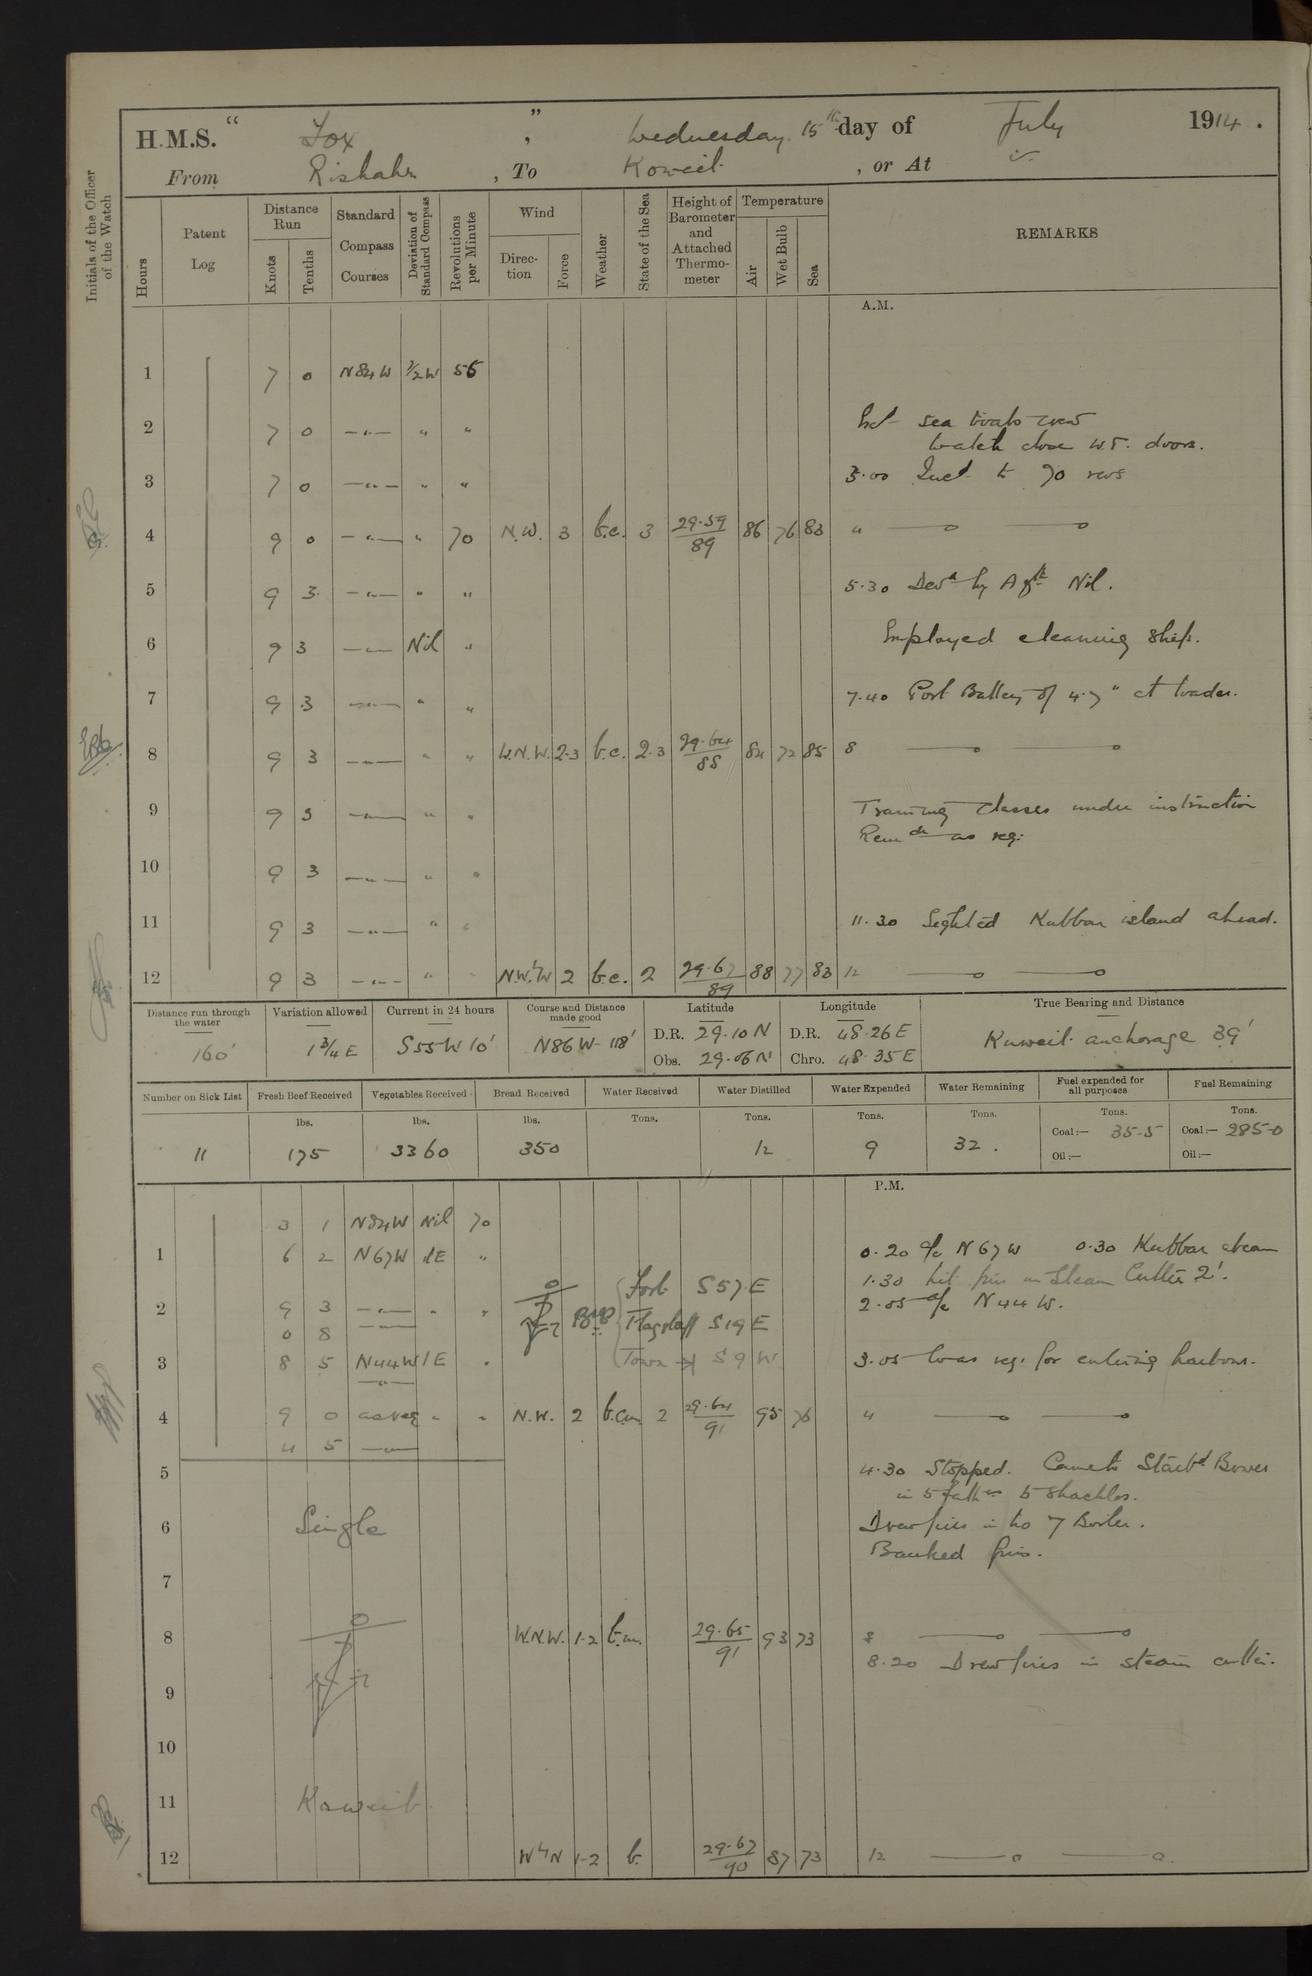 H.M.S. “ Fox ” , Wednesday 15th day of July 1914 .
From Rishahr , To Koweit , or At
Initials of the Officer of the Watch
Hours
Patent Log
Distance Run
Knots
Tenths
Standard Compass Courses
Deviation of Standard Compass
Revolutions per Minute
Wind
Direction
Force
Weather
State of the Sea
Height of Barometer and Attached Thermometer
Temperature
Air
Wet Bulb
Sea
REMARKS
A.M.
1 7 0 N84W ½W 56
2 7 0 —"— " " sea boats crew
watch close W.T. doors.
3 7 0 —"— " " 3.00 Incd to 70 revs
4 9 0 —"— " 70 N.W. 3 b.c. 3 29.59/89 86 76 83 4
5 9 3 —"— " " 5.30 Devn by Azth Nil.
6 9 3 —"— Nil " Employed cleaning ship.
7 9 3 —"— " " 7.40 Port Battery of 4.7" at loader.
8 9 3 —"— " " W.N.W. 2-3 b.c. 2.3 29.64/88 84 72 85 8
9 9 3 —"— " " Training classes under instruction
Remdr as req:
10 9 3 —"— " "
11 9 3 —"— " " 11.30 Sighted Kubbar island ahead.
12 9 3 —"— " " N.W.'W 2 b.c. 2 29.67/89 88 77 83 12
Distance run through the water
Variation allowed
Current in 24 hours
Course and Distance made good
Latitude
Longitude
True Bearing and Distance
160' 1¾ E S55W 10' N86W 118' D.R. 29.10 N D.R. 48.26 E Kuweit anchorage 39'
Obs. 29.06 N Chro. 48.35 E
Number on Sick List
Fresh Beef Received
Vegetables Received
Bread Received
Water Received
Water Distilled
Water Expended
Water Remaining
Fuel expended for all purposes
Fuel Remaining
lbs. lbs. lbs. Tons. Tons. Tons. Tons. Tons. Tons.
11 175 3360 350 12 9 32 . Coal:— 35.5 Coal:— 285.0
Oil:— Oil:—
P.M.
3 1 N84W Nil 70
1 6 2 N67W " 0.20 a/c N67W 0.30 Kubbar abeam
Fort S57E 1.30 lit fires in Steam Cutter 2'.
2 9 3 —"— " " Flagstaff S19E 2.05 a/c N44W.
0 8 —"—
3 8 5 N44W 1E " Town S9W 3.05 Co as req: for entering harbour.
—"—
4 9 0 as req " " N.W. 2 b.c.m. 2 29.64/91 95 76 4
4 5 —"—
5 4.30 Stopped. Came to Starbd Bower
in 5 faths 5 shackles.
6 Single Drew fires in No 7 Boiler.
Banked fires.
7
8 W.N.W. 1-2 b.m. 29.65/91 93 73 8
8.20 Drew fires in steam cutter.
9
10
11 Koweit
12 W'N 1-2 b. 29.67/90 87 73 12